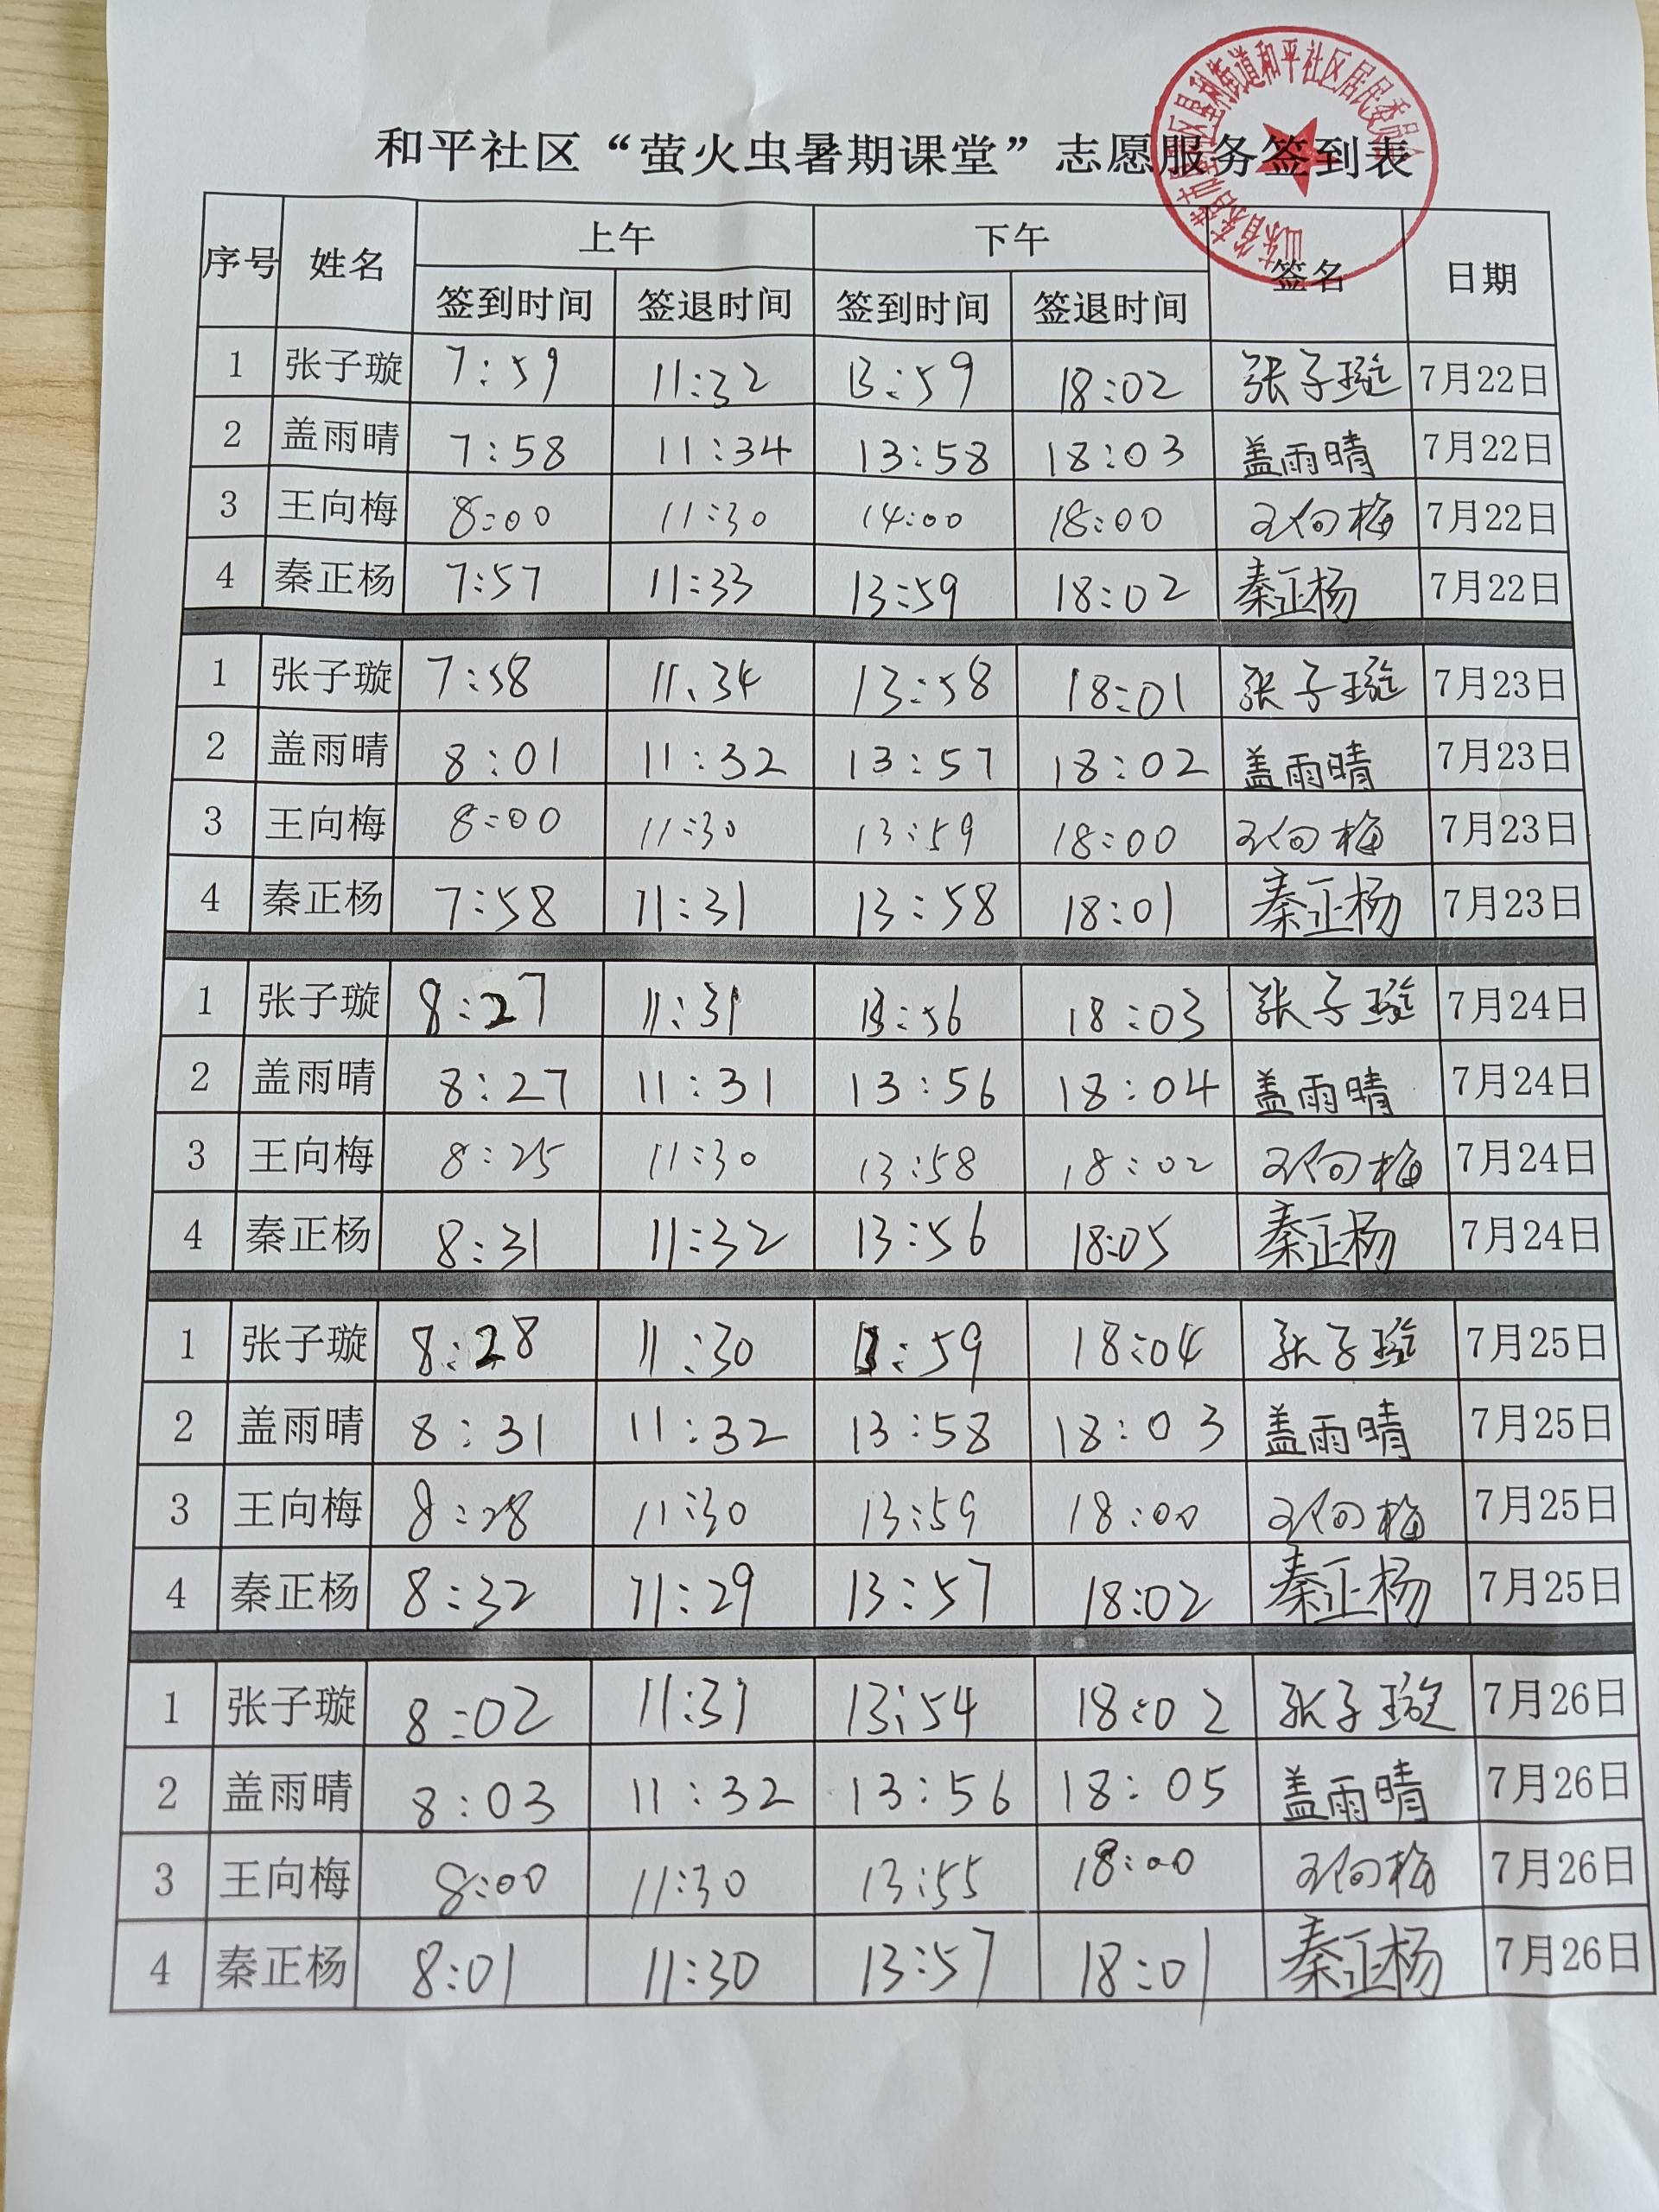 和平社区“萤火虫暑期课堂”志愿服务签到表
序号 姓名 上午 下午 签名 日期
签到时间 签退时间 签到时间 签退时间
1 张子璇 7:59 11:32 13:59 18:02 张子璇 7月22日
2 盖雨晴 7:58 11:34 13:58 18:03 盖雨晴 7月22日
3 王向梅 8:00 11:30 14:00 18:00 王向梅 7月22日
4 秦正杨 7:57 11:33 13:59 18:02 秦正杨 7月22日
1 张子璇 7:58 11.34 13:58 18:01 张子璇 7月23日
2 盖雨晴 8:01 11:32 13:57 18:02 盖雨晴 7月23日
3 王向梅 8:00 11:30 13:59 18:00 王向梅 7月23日
4 秦正杨 7:58 11:31 13:58 18:01 秦正杨 7月23日
1 张子璇 8:27 11:31 13:56 18:03 张子璇 7月24日
2 盖雨晴 8:27 11:31 13:56 18:04 盖雨晴 7月24日
3 王向梅 8:25 11:30 13:58 18:02 王向梅 7月24日
4 秦正杨 8:31 11:32 13:56 18:05 秦正杨 7月24日
1 张子璇 8:28 11:30 13:59 18:04 张子璇 7月25日
2 盖雨晴 8:31 11:32 13:58 18:03 盖雨晴 7月25日
3 王向梅 8:28 11:30 13:59 18:00 王向梅 7月25日
4 秦正杨 8:32 11:29 13:57 18:02 秦正杨 7月25日
1 张子璇 8:02 11:31 13:54 18:02 张子璇 7月26日
2 盖雨晴 8:03 11:32 13:56 18:05 盖雨晴 7月26日
3 王向梅 8:00 11:30 13:55 18:00 王向梅 7月26日
4 秦正杨 8:01 11:30 13:57 18:01 秦正杨 7月26日
街道和平社区居民委员会